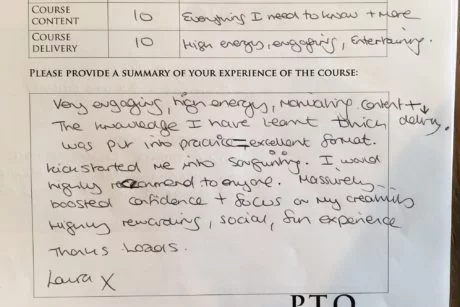 COURSE CONTENT 10 Everything I need to know + more
COURSE DELIVERY 10 High energy, engaging, Entertaining.
PLEASE PROVIDE A SUMMARY OF YOUR EXPERIENCE OF THE COURSE:
Very engaging, high energy, Motivating content +
The knowledge I have learnt delivery.
was put into practice = excellent format.
Kickstarted me into songwriting. I would
highly recommend to anyone. Massively
boosted confidence + focus on my creativity
Highly rewarding, social, fun experience
Thanks Loads.
Laura X
P.T.O